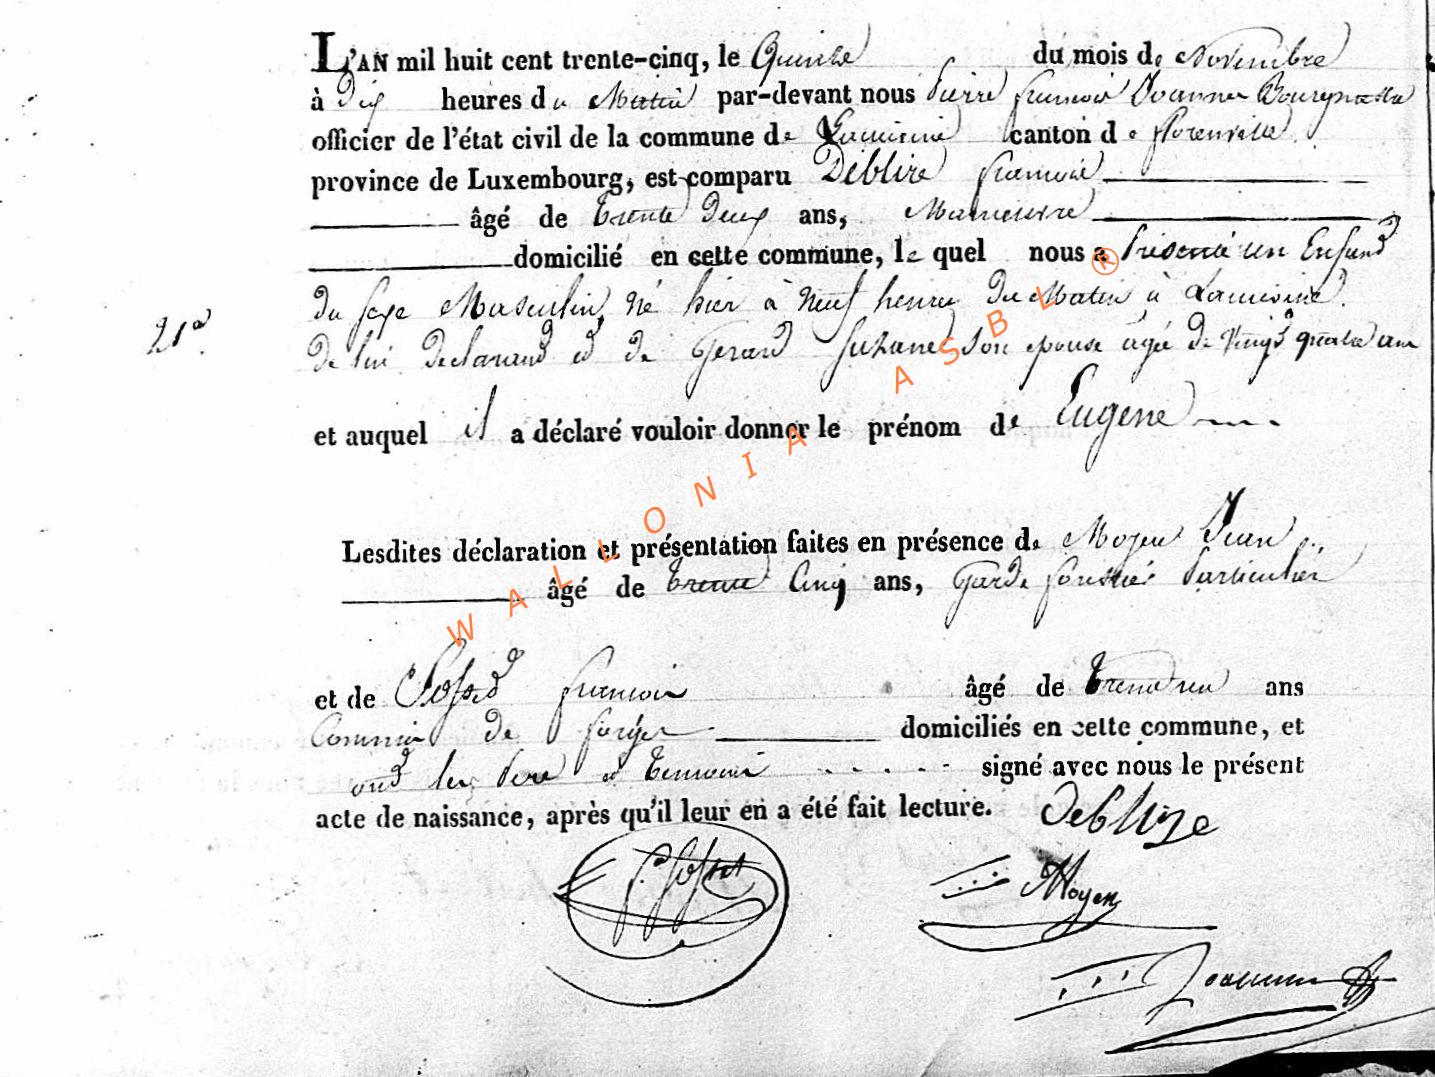 L'AN mil huit cent trente-cinq, le Quinze du mois de Novembre
à Dix heures du Matin par-devant nous Pierre francois Joannes Bourgmestre
officier de l'état civil de la commune de Lacuisine canton de florenville
province de Luxembourg, est comparu Deblire francois
âgé de Trente Deux ans, Maneuvre
domicilié en cette commune, le quel nous a Présenté un Enfand
du sexe Masculin, né hier à Neuf heures Du Matin à Lacuisine
21e
de lui declarand et de Gerard Suzane son epouse agée de Vingt quatre ans
et auquel il a déclaré vouloir donner le prénom de Eugene
Lesdites déclaration et présentation faites en présence de Moyen Jean
âgé de Trente Cinq ans, Garde forestier Particulier
et de francois âgé de ans
Commis de forges domiciliés en cette commune, et
ond les Pere et Temoins signé avec nous le présent
acte de naissance, après qu'il leur en a été fait lecture.
Deblize
Moyen
Joannes
WALLONIA ASBL ®